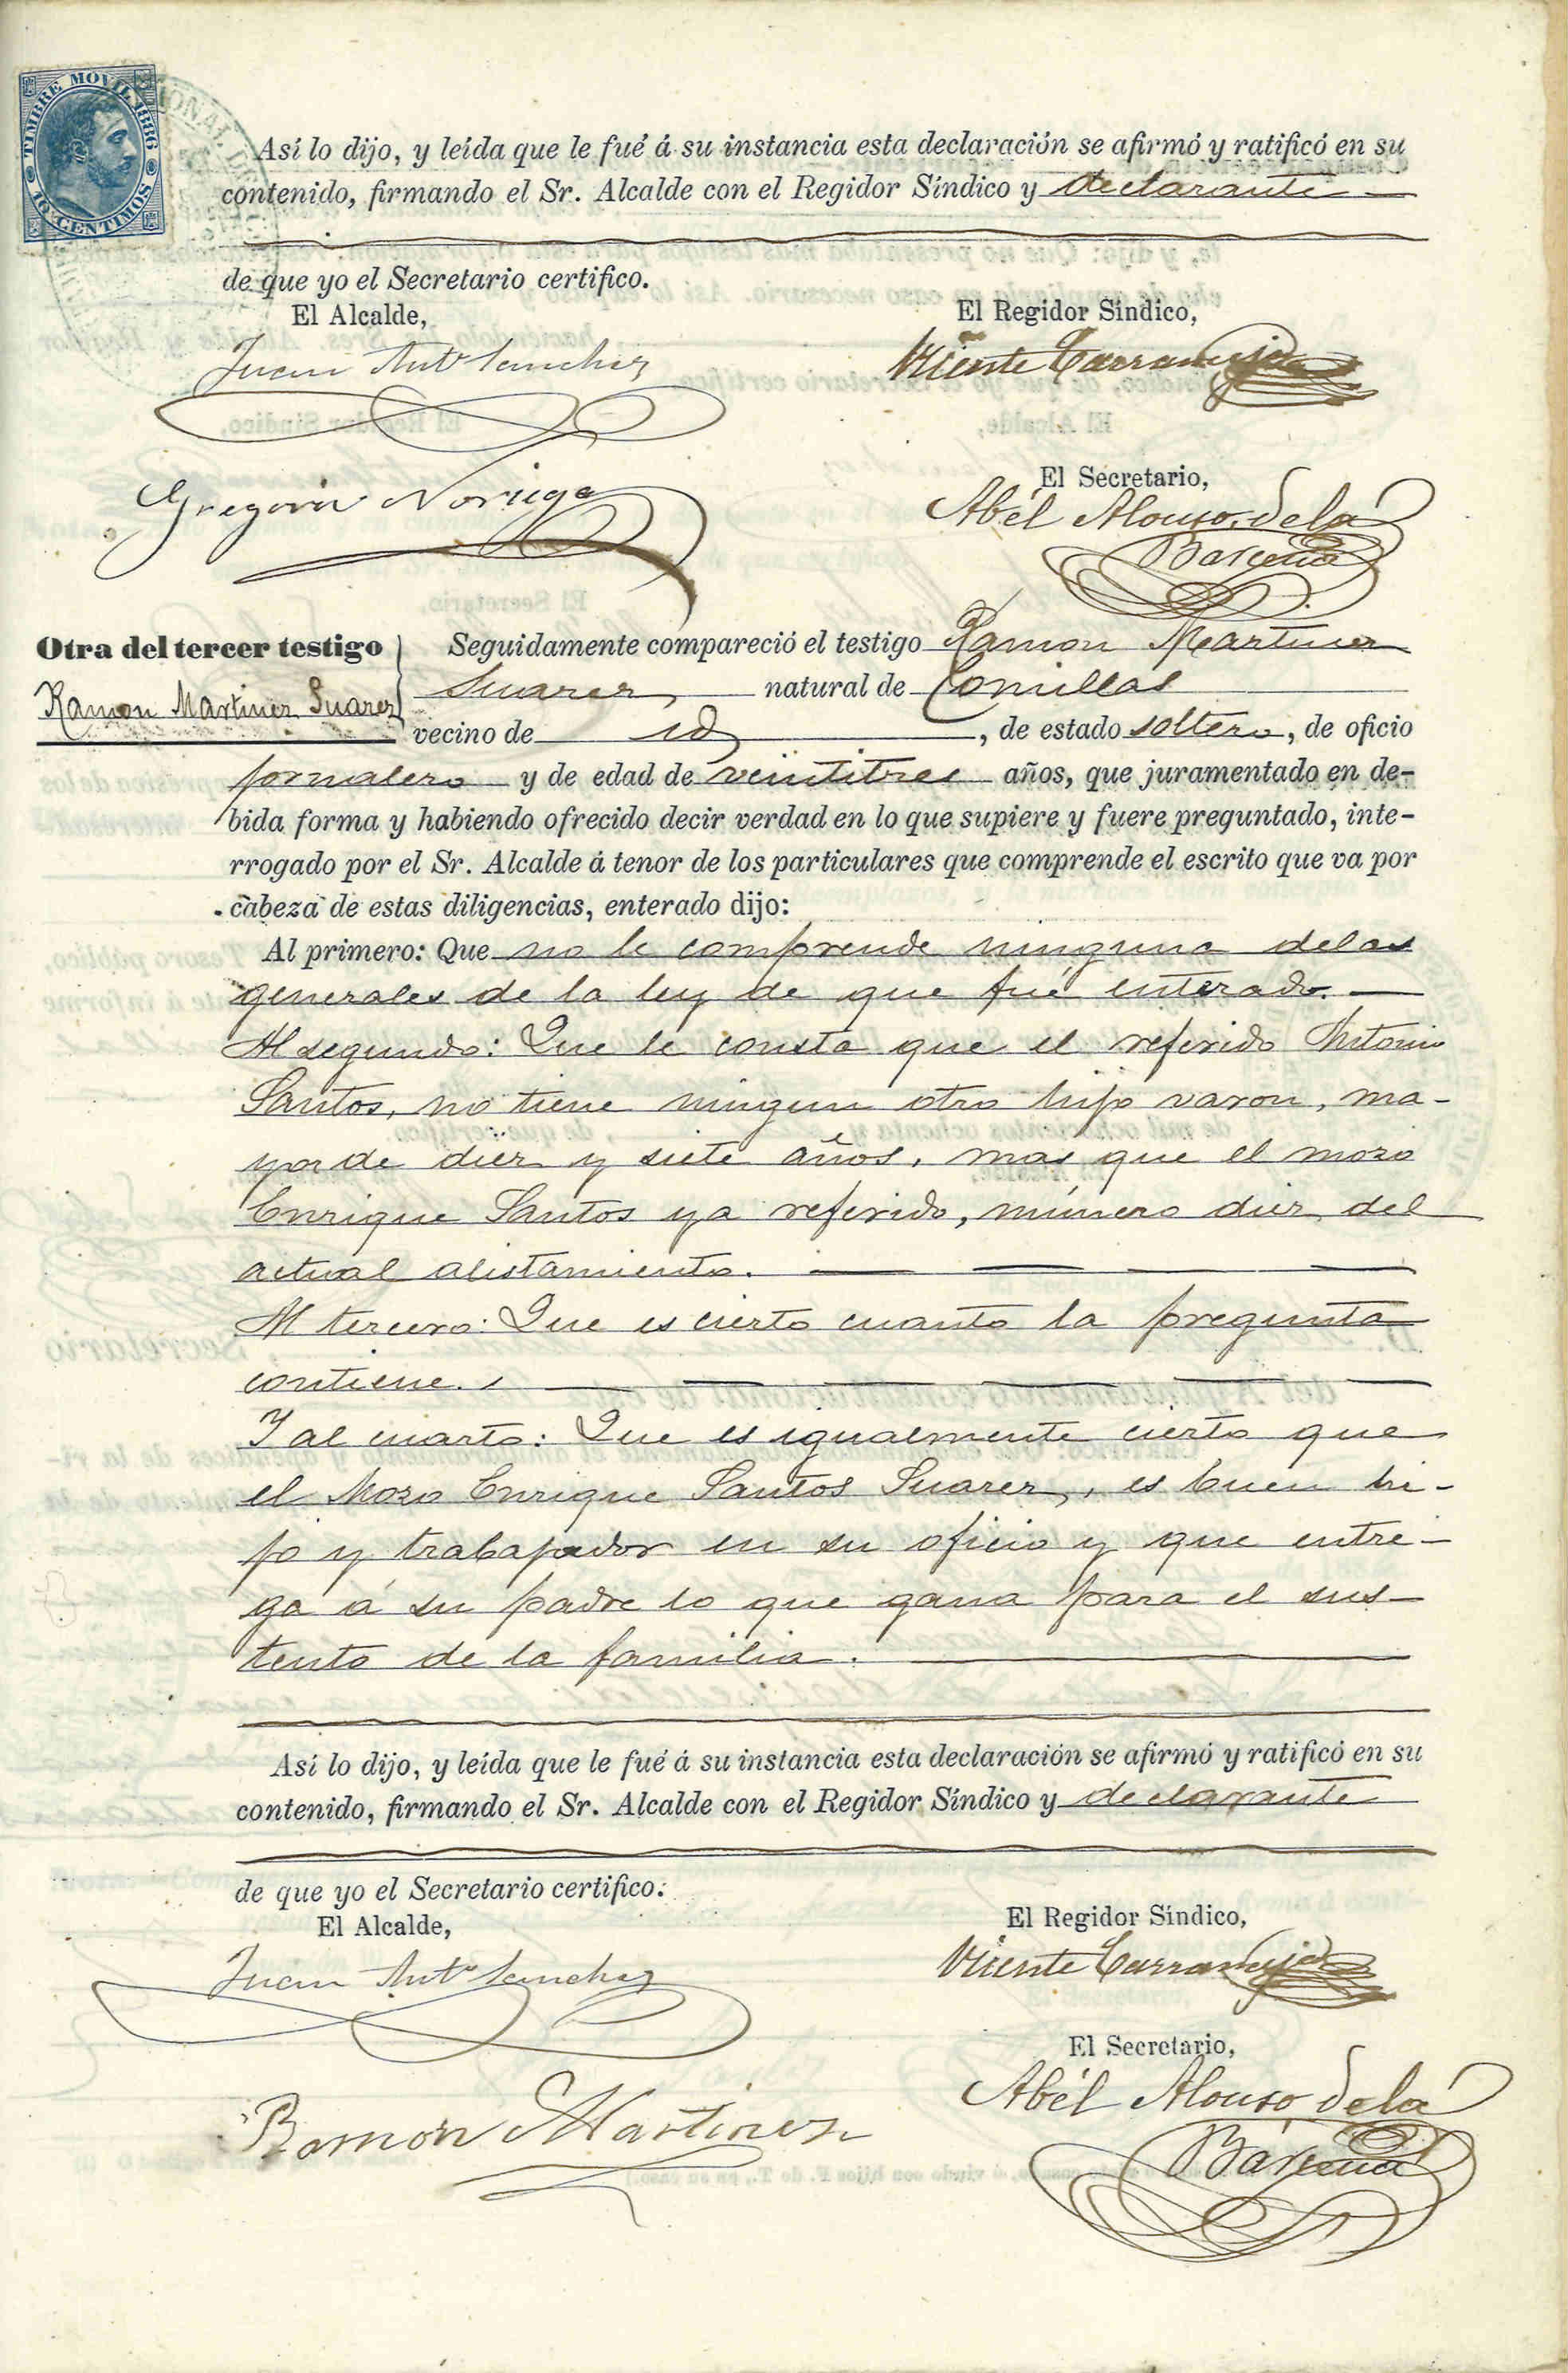 TIMBRE MOVIL 1886
10 CENTIMOS
Así lo dijo, y leída que le fué á su instancia esta declaración se afirmó y ratificó en su
contenido, firmando el Sr. Alcalde con el Regidor Síndico y declarante
de que yo el Secretario certifico.
El Alcalde,
El Regidor Síndico,
Juan Antº Sanchez
Vicente Carranceja
El Secretario,
Gregorio Noriega
Abél Alonso de la
Bárcena
Otra del tercer testigo
Ramon Martinez Suarez
Seguidamente compareció el testigo Ramon Martinez
Suarez natural de Comillas
vecino de id, de estado soltero, de oficio
jornalero y de edad de veintitres años, que juramentado en de-
bida forma y habiendo ofrecido decir verdad en lo que supiere y fuere preguntado, inte-
rrogado por el Sr. Alcalde á tenor de los particulares que comprende el escrito que va por
cabeza de estas diligencias, enterado dijo:
Al primero: Que no le comprende ninguna de las
generales de la ley de que fué enterado.
Al segundo: Que le consta que el referido Antonio
Santos, no tiene ningun otro hijo varon, ma-
yor de diez y siete años, mas que el mozo
Enrique Santos ya referido, número diez del
actual alistamiento.
Al tercero: Que es cierto cuanto la pregunta
contiene.
Y al cuarto: Que es igualmente cierto que
el Mozo Enrique Santos Suarez, es buen hi-
jo y trabajador en su oficio y que entre-
ga á su padre lo que gana para el sus-
tento de la familia.
Así lo dijo, y leída que le fué á su instancia esta declaración se afirmó y ratificó en su
contenido, firmando el Sr. Alcalde con el Regidor Síndico y declarante
de que yo el Secretario certifico.
El Alcalde,
El Regidor Síndico,
Juan Antº Sanchez
Vicente Carranceja
El Secretario,
Abél Alonso de la
Bárcena
Ramon Martinez